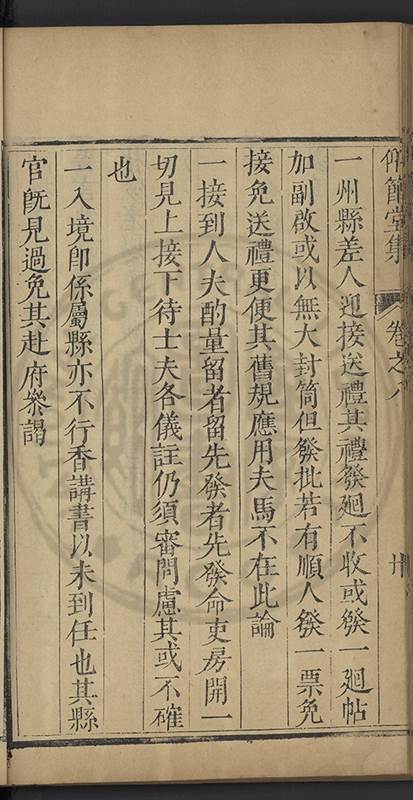 仰節堂集 卷之八 廿
一州縣差人迎接送禮其禮發廻不收或發一廻帖
加副啟或以無大封筒但發批若有順人發一票免
接免送禮更便其舊規應用夫馬不在此論
一接到人夫酌量留者留先發者先發命吏房開一
切見上接下待士夫各儀註仍須審問慮其或不確
也
一入境卽係屬縣亦不行香講書以未到任也其縣
官旣見過免其赴府叅謁